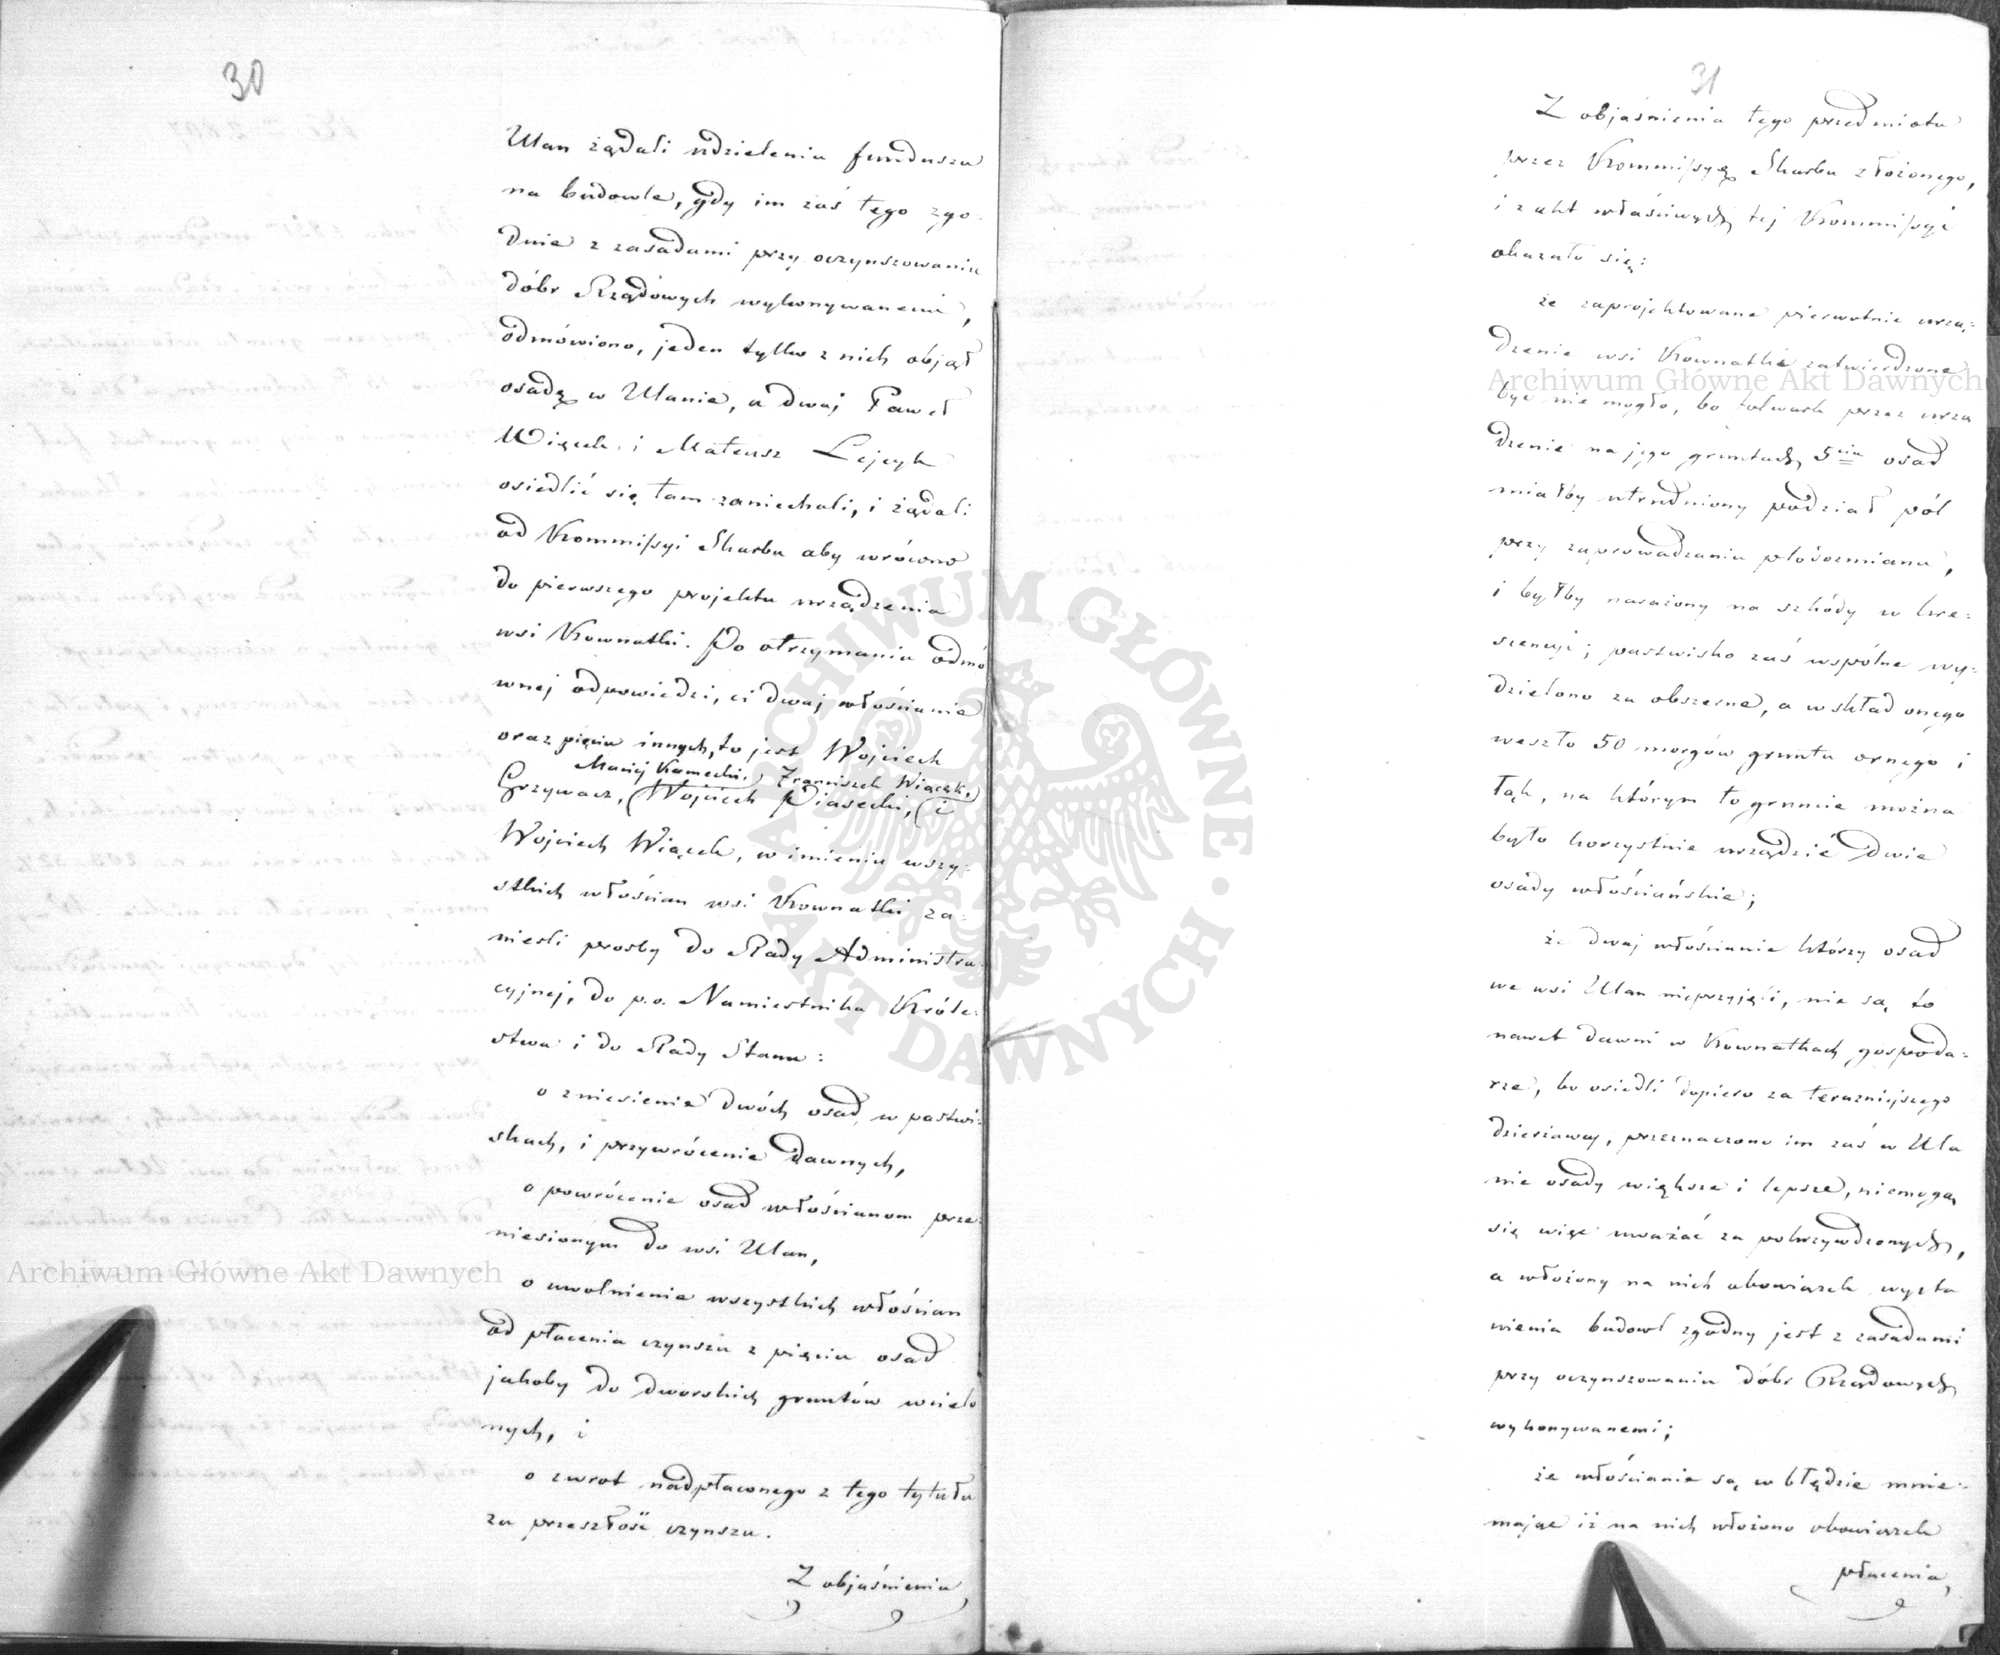 30
Ulan żądali udzielenia funduszu
na budowle, gdy im zaś tego zgo-
dnie z zasadami przy oczynszowaniu
dóbr Rządowych wykonywanemi,
odmówiono, jeden tylko z nich objął
osadę w Ulanie, a dwaj Paweł
Wiącek i Mateusz Lejcyk
osiedlić się tam zaniechali, i żądali
od Kommissyi Skarbu aby wrócono
do pierwszego projektu urządzenia
wsi Kownatki. Po otrzymaniu odmo
wnej odpowiedzi, ci dwaj włościanie
oraz pięciu innych, to jest Wojciech
Maciej Kamecki, Franciszek Wiącek,
Grzywacz, (Wojciech Piasecki, (i
Wojciech Wiącek, w imieniu wszy-
stkich włościan wsi Kownatki za-
nieśli prośby do Rady Administra-
cyjnej, do p.o. Namiestnika Króle-
stwa i do Rady Stanu:
o zniesienie dwóch osad w pastwi-
skach, i przywrócenie dawnych,
o powrócenie osad włościanom prze-
niesionym do wsi Ulan,
o uwolnienie wszystkich włościan
od płacenia czynszu z pięciu osad
jakoby do dworskich gruntów wcielo
nych, i
o zwrot nadpłaconego z tego tytułu
za przeszłość czynszu.
Z objaśnienia
31
Z objaśnienia tego przedmiotu
przez Kommissyę Skarbu złożonego,
i z akt właściwych tej Kommissyi
okazało się:
że zaprojektowane pierwotnie urzą-
dzenie wsi Kownatki zatwierdzone
być nie mogło, bo folwark przez urzą
dzenie na jego gruntach 5ciu osad
miałby utrudniony podział pól
przy zaprowadzaniu płodozmianu,
i byłby narażony na szkody w kre-
scencji; pastwisko zaś wspólne wy-
dzielono za obszerne, a w skład onego
weszło 50 morgów gruntu ornego i
łąk, na którym to gruncie można
było korzystnie urządzić dwie
osady włościańskie;
że dwaj włościanie którzy osad
we wsi Ulan nieprzyjęli, nie są to
nawet dawni w Kownatkach gospoda-
rze, bo osiedli dopiero za teraźniejszego
dzierżawcy, przeznaczono im zaś w Ula
nie osady większe i lepsze, niemogą
się więc uważać za pokrzywdzonych,
a włożony na nich obowiązek wysta
wienia budowl zgodny jest z zasadami
przy oczynszowaniu dóbr Rządowych
wykonywanemi;
że włościanie są w błędzie mnie-
mając iż na nich włożono obowiązek
płacenia,
Archiwum Główne Akt Dawnych
Archiwum Główne Akt Dawnych
ARCHIWUM GŁÓWNE · AKT DAWNYCH ·